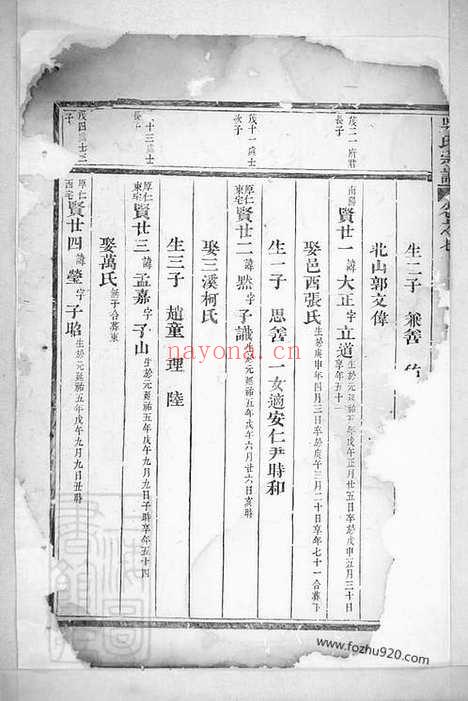 吳氏宗譜
生二子 兼善
北山郭文偉
茂二府君長子
南陽 賢廿一 諱大正字立道 戊午正月廿五日卒於戊申五月三十日享年五十一
娶邑西張氏 生於庚申年四月三日卒於庚午三月二十日享年七十一合葬
茂十一處士次子
生一子 思善 一女適安仁尹時和
原仁東宅 賢廿二 諱㷍字子識 生於元延祐五年戊午六月廿六日亥時
娶三溪柯氏
十三處士長子
生三子 趙童 理 陸
原仁東宅 賢廿三 諱孟嘉字子山 生於元延祐五年戊午九月九日子時享年五十四
娶萬氏 無子合葬東
茂四處士三子
原仁西宅 賢廿四 諱瑩字子昭 生於元延祐五年戊午九月九日丑時
nayona.cn
www.fozhu920.com